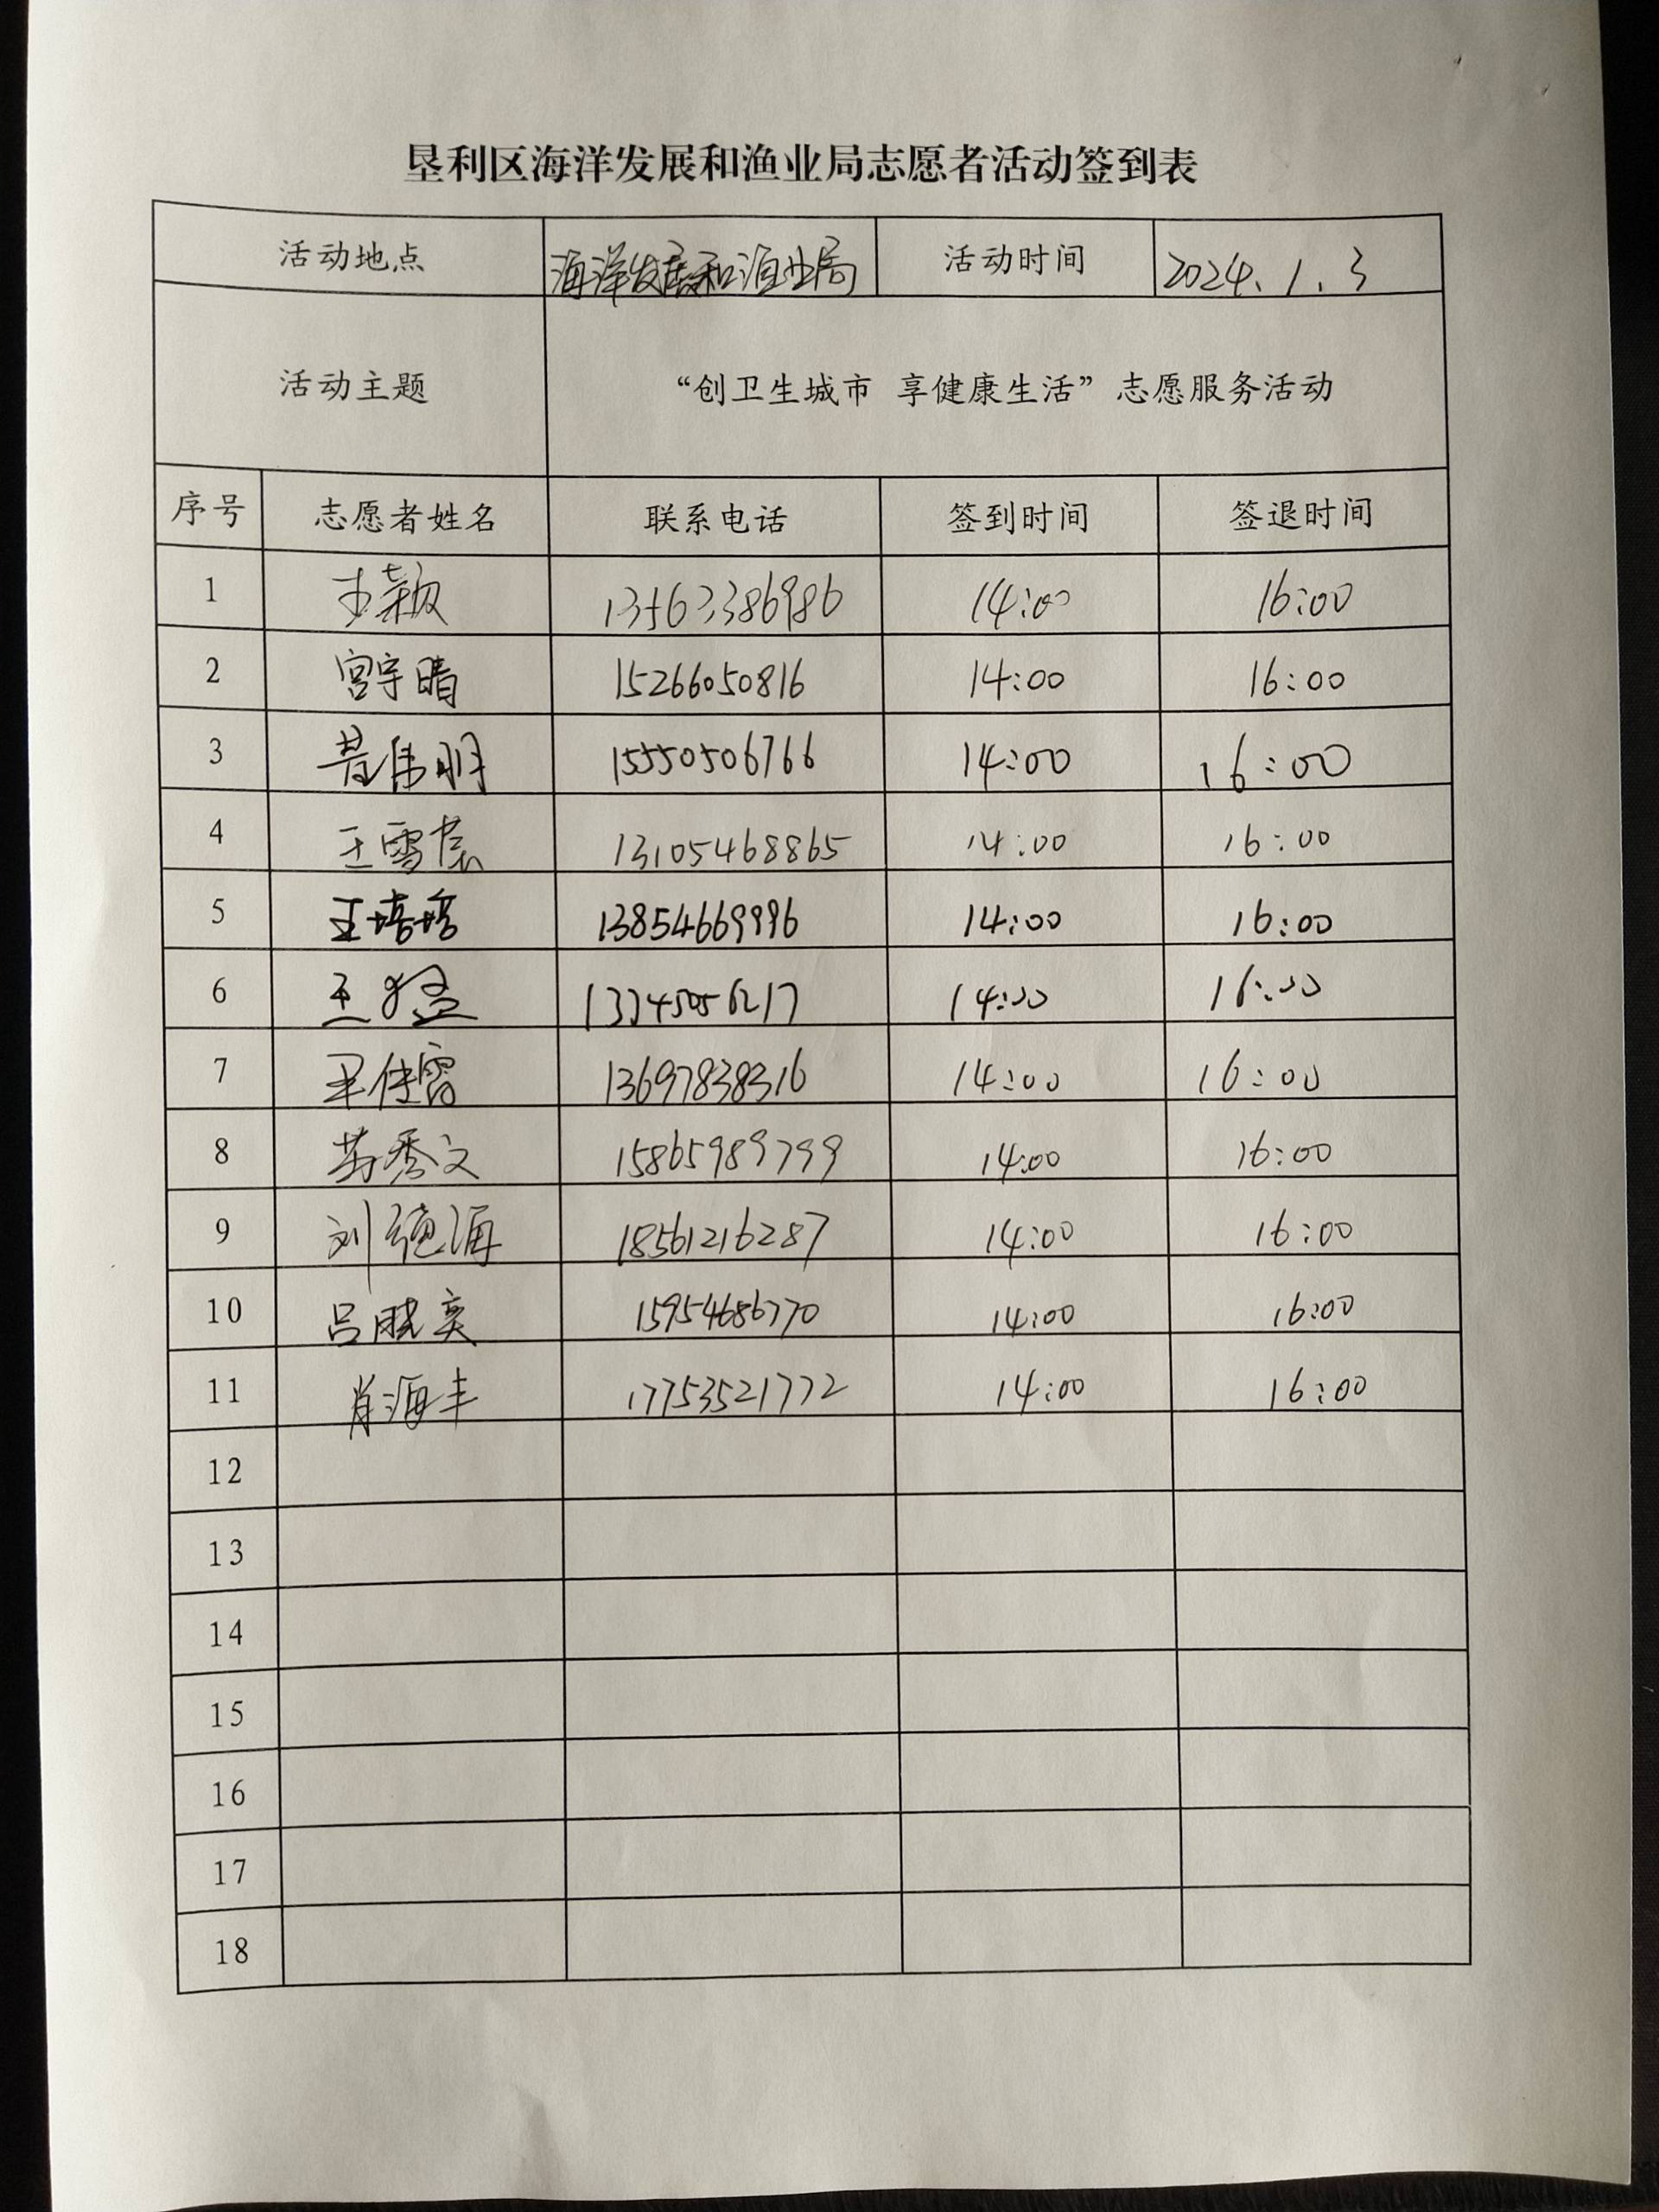 垦利区海洋发展和渔业局志愿者活动签到表
活动地点 海洋发展和渔业局 活动时间 2024.1.3
活动主题 “创卫生城市 享健康生活”志愿服务活动
序号 志愿者姓名 联系电话 签到时间 签退时间
1 13563386986 14:00 16:00
2 宫宇晴 15266050816 14:00 16:00
3 15550506766 14:00 16:00
4 王雪 13105468865 14:00 16:00
5 王培培 13854669996 14:00 16:00
6 王猛 14:00 16:00
7 13697838316 14:00 16:00
8 苏秀文 15865989799 14:00 16:00
9 刘德海 18561216287 14:00 16:00
10 吕晓奕 15954686770 14:00 16:00
11 肖海丰 17753521772 14:00 16:00
12
13
14
15
16
17
18